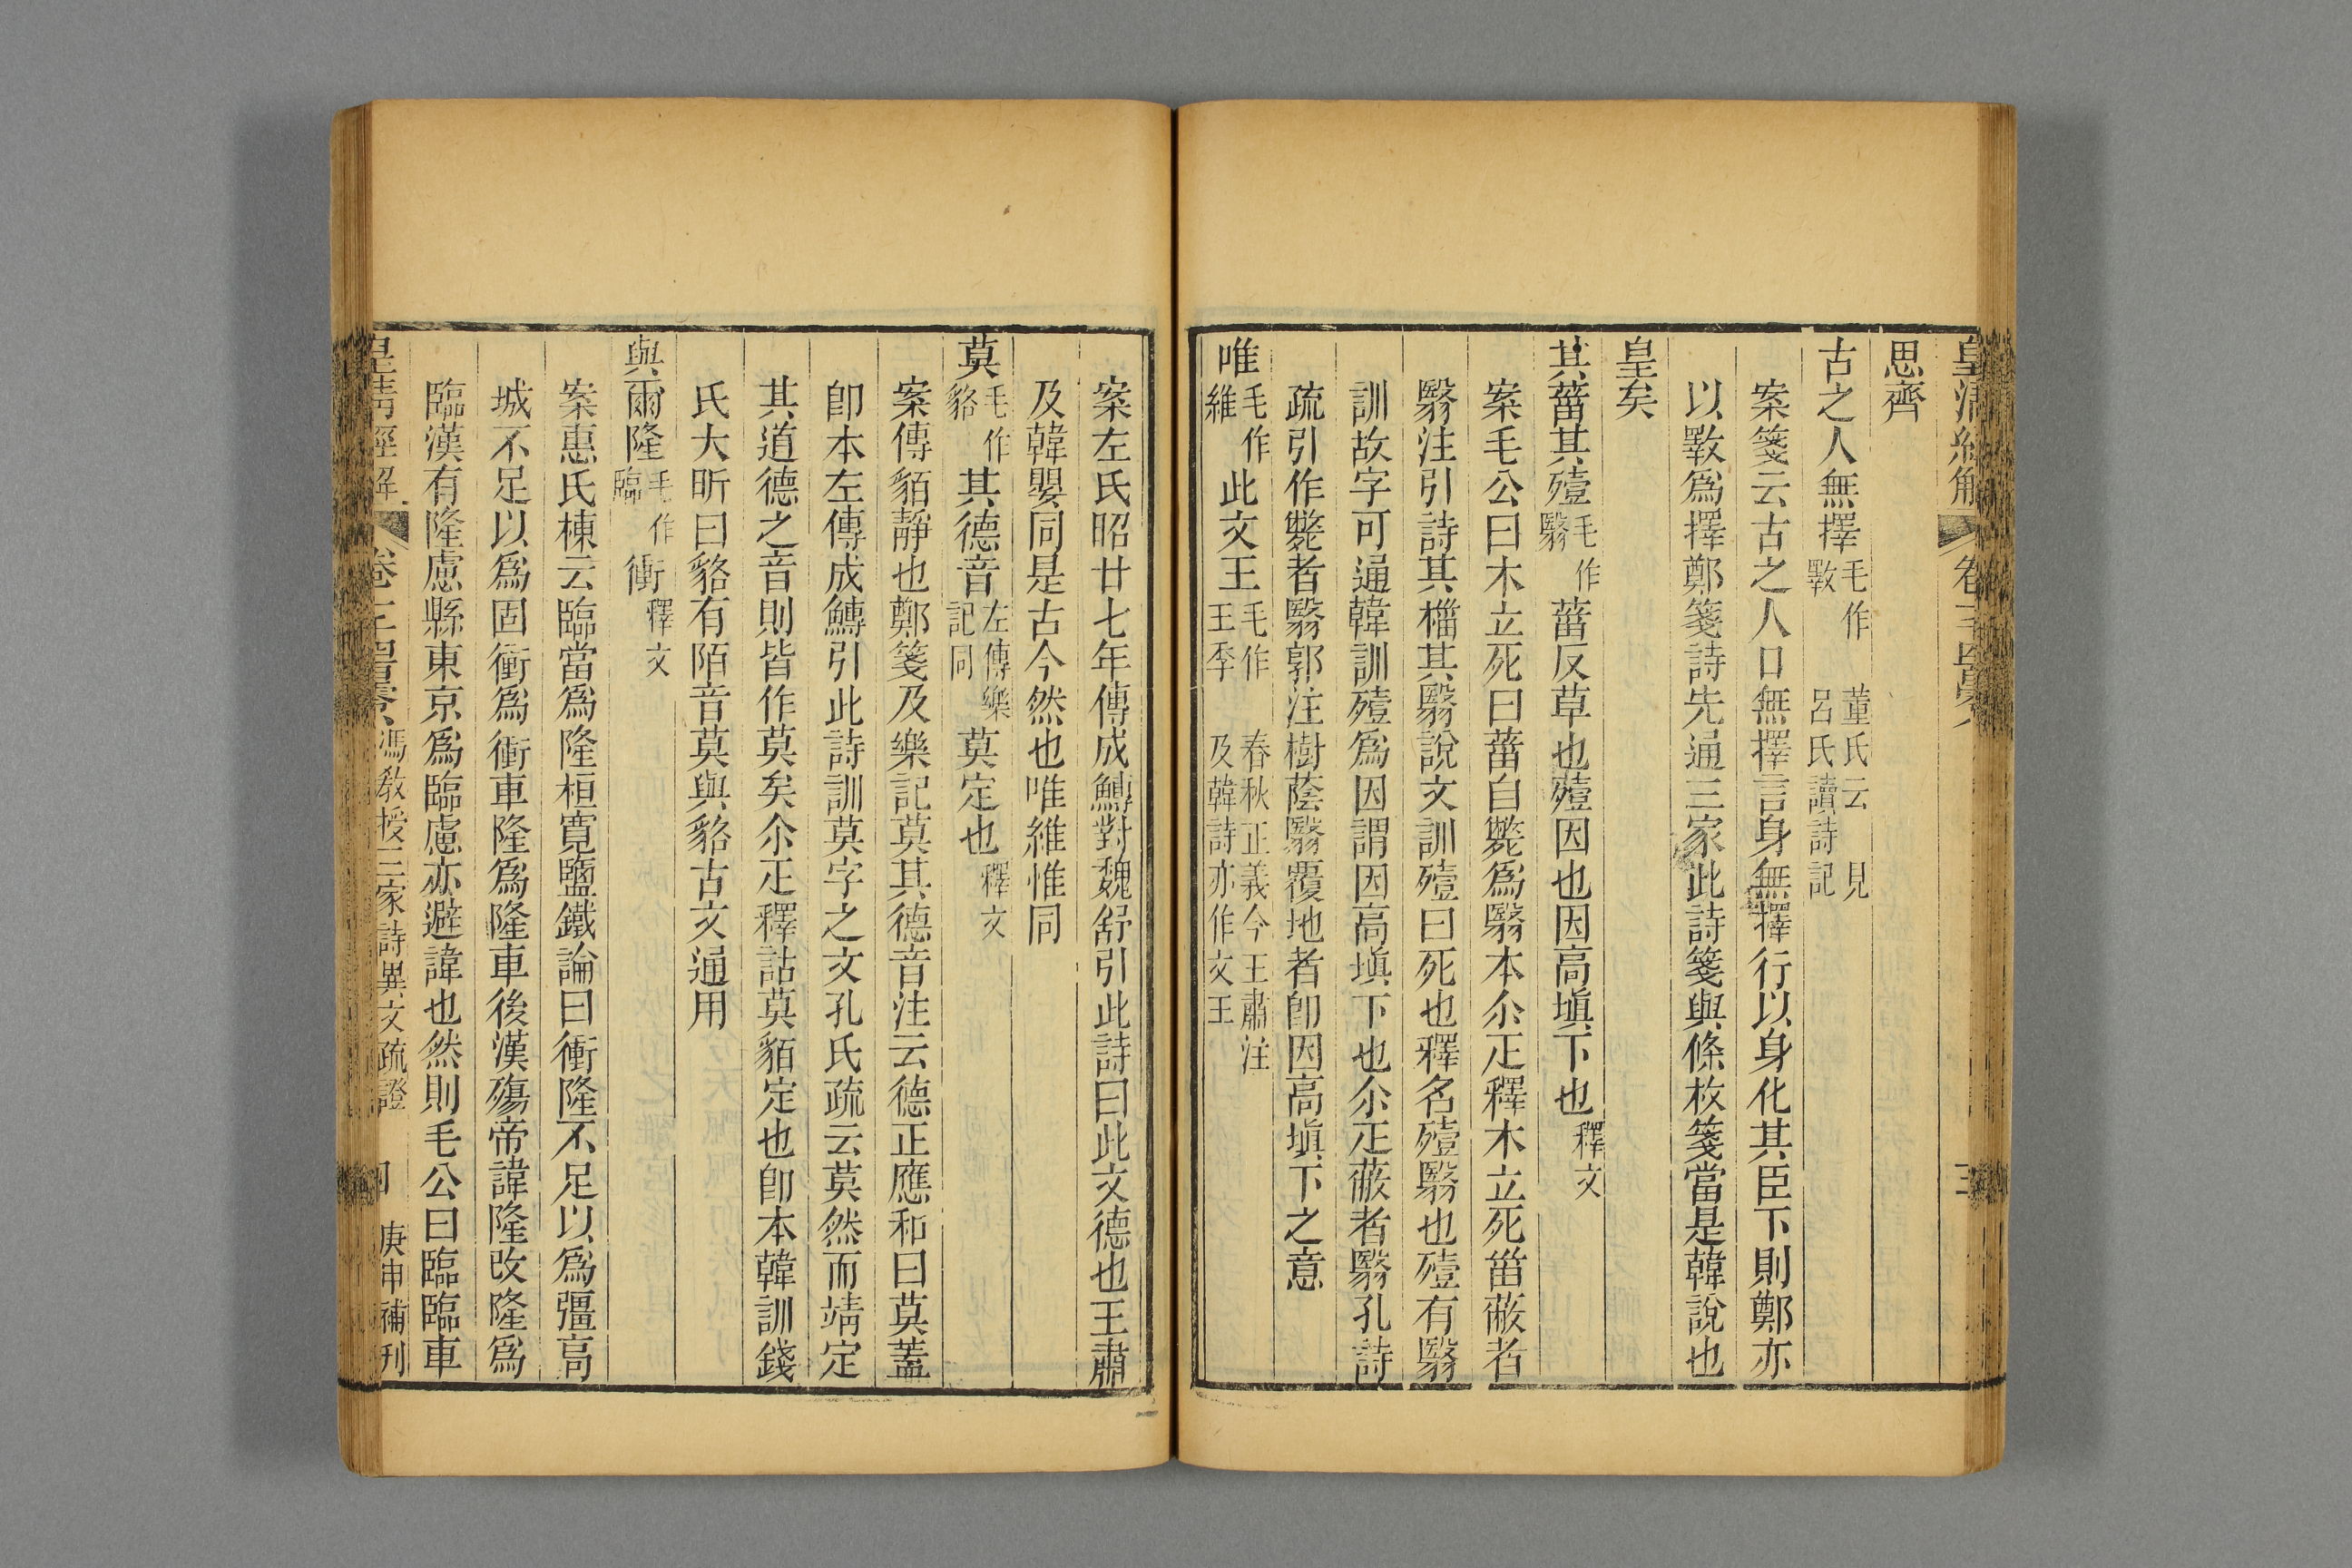 皇清經解
思齊
古之人無擇毛作斁董氏云見呂氏讀詩記
案箋云古之人口無擇言身無擇行以身化其臣下則鄭亦
以斁爲擇鄭箋詩先通三家此詩箋與條枚箋當是韓說也
皇矣
其葘其殪毛作翳葘反草也殪因也因高塡下也釋文
案毛公曰木立死曰葘自斃爲翳本尒疋釋木立死甾蔽者
翳注引詩其椔其翳說文訓殪曰死也釋名殪翳也殪有翳
訓故字可通韓訓殪爲因謂因高塡下也尒疋蔽者翳孔詩
疏引作斃者翳郭注樹蔭翳覆地者卽因高塡下之意
唯毛作維此文王毛作王季春秋正義今王肅注及韓詩亦作文王
案左氏昭廿七年傳成鱄對魏舒引此詩曰此文德也王肅
及韓嬰同是古今然也唯維惟同
莫毛作貉其德音左傳樂記同莫定也釋文
案傳貊靜也鄭箋及樂記莫其德音注云德正應和曰莫蓋
卽本左傳成鱄引此詩訓莫字之文孔氏疏云莫然而靖定
其道德之音則皆作莫矣尒疋釋詁莫貊定也卽本韓訓錢
氏大昕曰貉有陌音莫與貉古文通用
與爾隆毛作臨衝釋文
案惠氏棟云臨當爲隆桓寬鹽鐵論曰衝隆不足以爲彊高
城不足以爲固衝爲衝車隆爲隆車後漢殤帝諱隆改隆爲
臨漢有隆慮縣東京爲臨慮亦避諱也然則毛公曰臨臨車
皇清經解 馮敎授三家詩異文疏證 庚申補刊